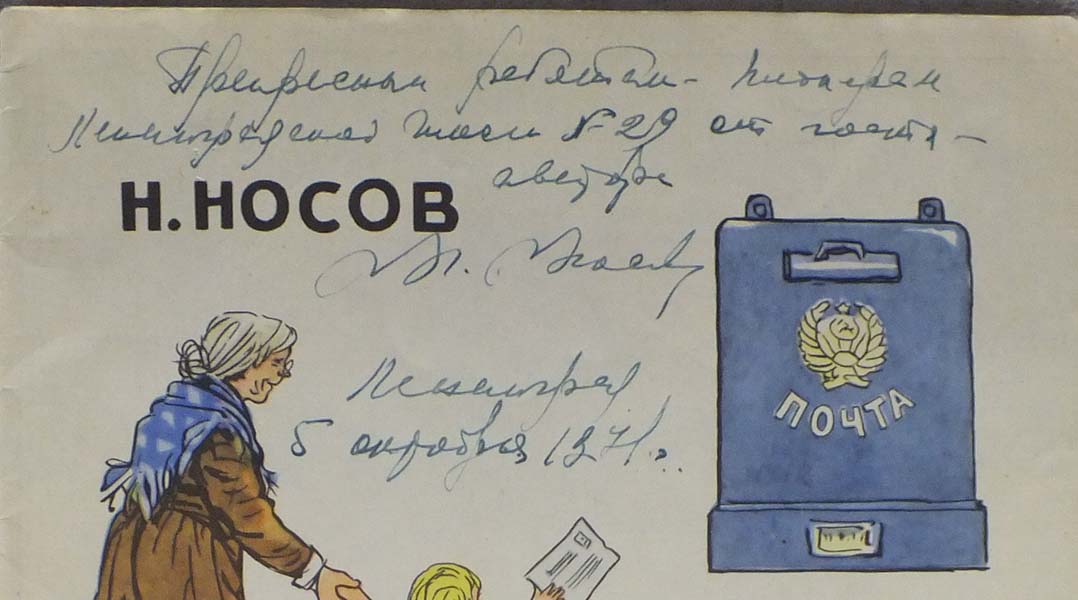 Прекрасным ребятам - пионерам
Ленинградской школы № 29 от гостя -
автора
Н. НОСОВ
Н. Носов
Ленинград
5 октября 1971 г.
ПОЧТА